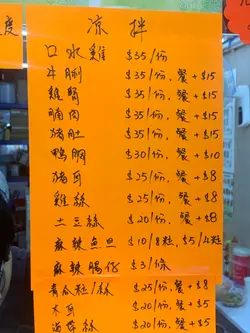 度
凉拌
口水雞 $35/份
牛腱 $35/份, 餐+$15
雞腎 $35/份, 餐+$15
腩肉 $35/份, 餐+$15
猪肚 $35/份, 餐+$15
鸭胸 $30/份, 餐+$10
猪耳 $25/份, 餐+$8
雞絲 $25/份, 餐+$8
土豆絲 $20/份, 餐+$8
麻辣魚旦 $10/8粒, $5/4粒
麻辣腸仔 $3/份
青瓜粒/絲 $25/份, 餐+$8
木耳 $20/份, 餐+$5
絲 $20/份, 餐+$5